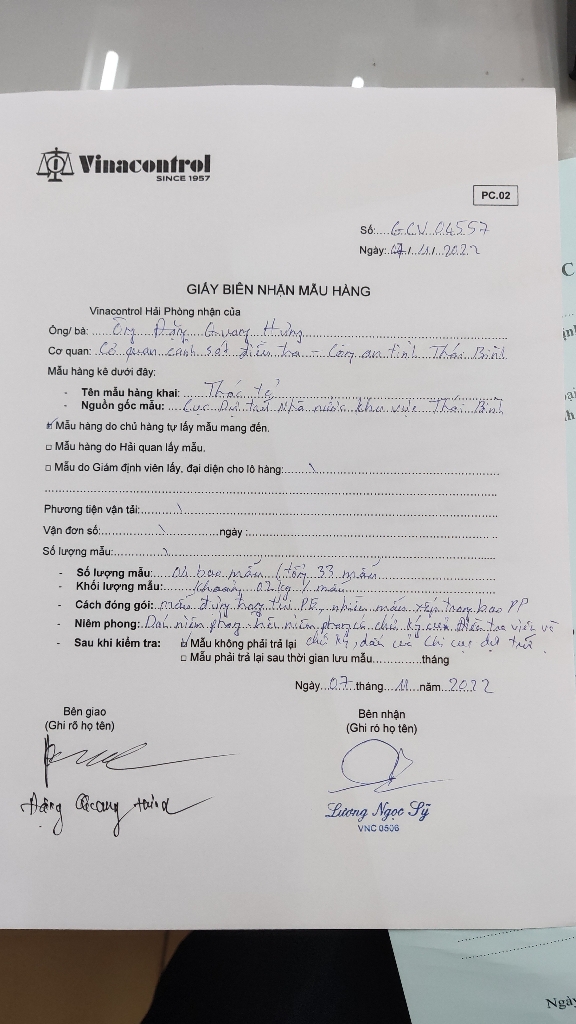 Vinacontrol
SINCE 1957
PC.02
Số:....GCV 04557
Ngày:..07/11/2022
GIẤY BIÊN NHẬN MẪU HÀNG
Vinacontrol Hải Phòng nhận của
Ông/ bà: Ông Đặng Quang Hưng
Cơ quan: Cơ quan cảnh sát điều tra - Công an tỉnh Thái Bình
Mẫu hàng kê dưới đây:
- Tên mẫu hàng khai: Thóc tẻ
- Nguồn gốc mẫu: Cục Dự trữ Nhà nước khu vực Thái Bình
☑ Mẫu hàng do chủ hàng tự lấy mẫu mang đến.
□ Mẫu hàng do Hải quan lấy mẫu.
□ Mẫu do Giám định viên lấy, đại diện cho lô hàng: \
Phương tiện vận tải: \
Vận đơn số: \ ngày :
Số lượng mẫu: \
- Số lượng mẫu: bao mẫu (tổng 33 mẫu
- Khối lượng mẫu: Khoảng 02 kg / mẫu
- Cách đóng gói: mẫu đựng trong túi PE, nhiều mẫu xếp trong bao PP
- Niêm phong: Dán niêm phong, trên niêm phong có chữ ký của Điều tra viên và
- Sau khi kiểm tra: ☑ Mẫu không phải trả lại chữ ký, dấu của Chi cục dự trữ
□ Mẫu phải trả lại sau thời gian lưu mẫu..............tháng
Ngày 07 tháng 11 năm 2022
Bên giao
(Ghi rõ họ tên)
Bên nhận
(Ghi rõ họ tên)
Đặng Quang Hưng
Lương Ngọc Sỹ
VNC 0506
Ngày